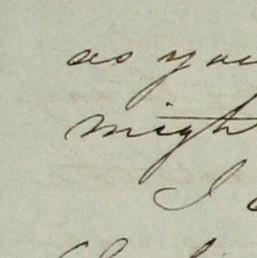 as you
might
I